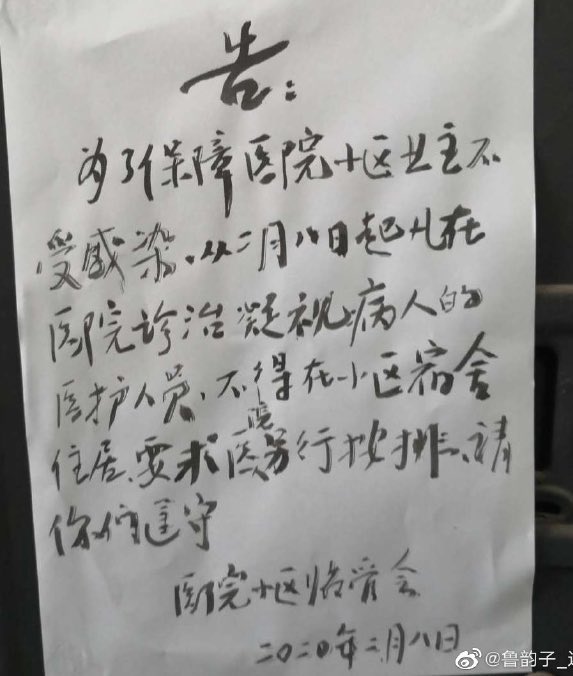 告:
为了保障医院小区业主不
受感染.从二月八日起凡在
医院诊治凝视病人的
医护人员、不得在小区宿舍
住居、要求医院另行按排、请
你们遵守
医院小区临管会
二0二0年二月八日
@鲁韵子_